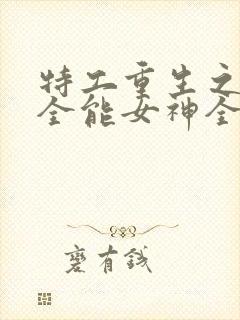 特工重生之
全能女神全
蹇有钱